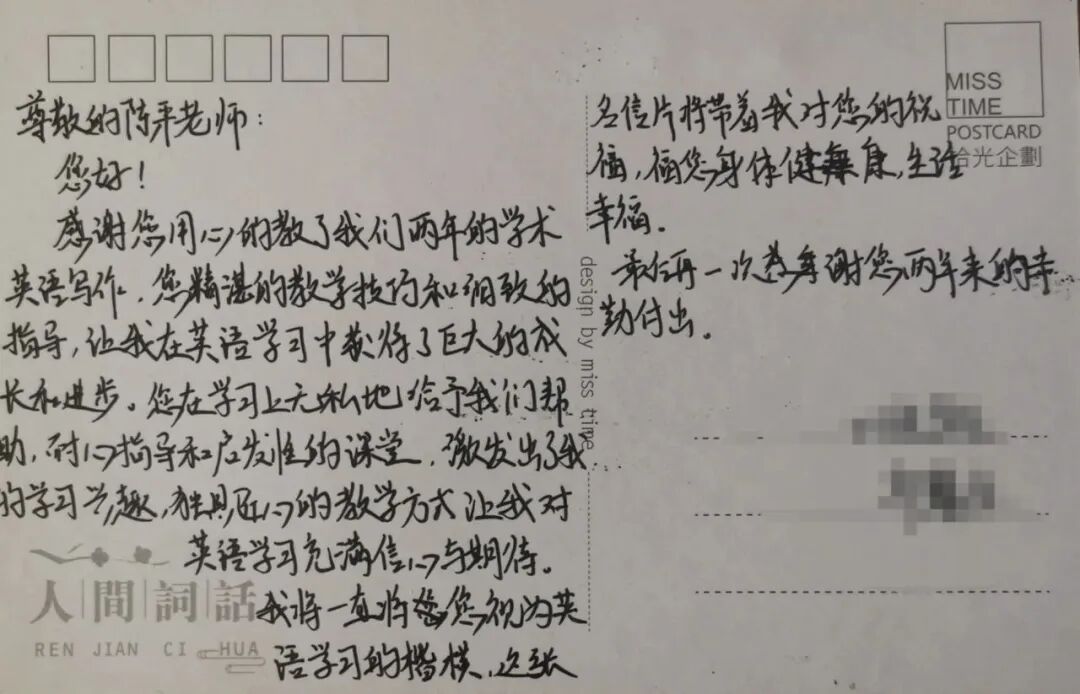 尊敬的陈平老师:
您好!
感谢您用心的教了我们两年的学术
英语写作,您精湛的教学技巧和细致的
指导,让我在英语学习中获得了巨大的成
长和进步。您在学习上无私地给予我们帮
助,耐心指导和启发性的课堂,激发出了我
的学习兴趣,独具匠心的教学方式让我对
英语学习充满信心与期待。
我将一直将您视为英
语学习的楷模,这张
名信片将带着我对您的祝
福,福您身体健康,生活
幸福。
最后再一次感谢您两年来的辛
勤付出。
MISS
TIME
POSTCARD
拾光企劃
design by miss time
人間詞話
REN JIAN CI HUA